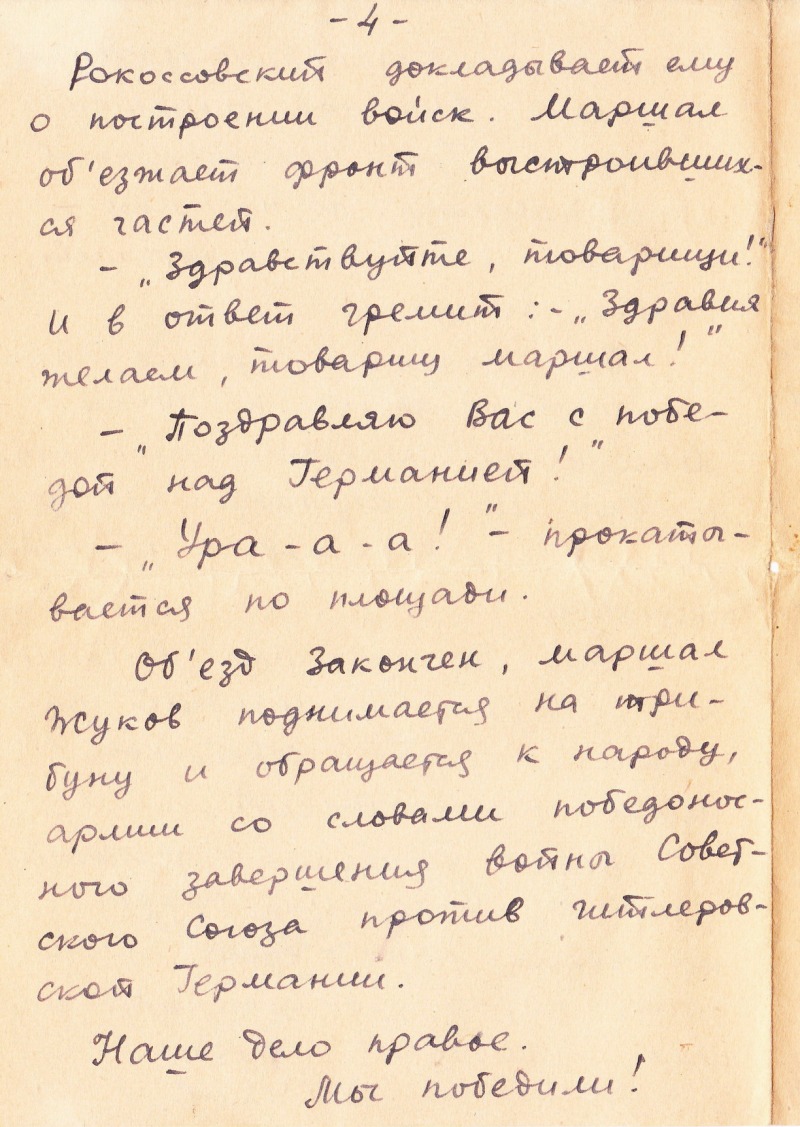 - 4 -
Рокоссовский докладывает ему
о построении войск. Маршал
об'езжает фронт выстроивших-
ся частей.
- „Здравствуйте, товарищи!"
И в ответ гремит: - „Здравия
желаем, товарищ маршал!"
- „Поздравляю Вас с побе-
дой над Германией!"
- „Ура-а-а!" - прокаты-
вается по площади.
Об'езд закончен, маршал
Жуков поднимается на три-
буну и обращается к народу,
армии со словами победонос-
ного завершения войны Совет-
ского Союза против гитлеров-
ской Германии.
Наше дело правое.
Мы победили!